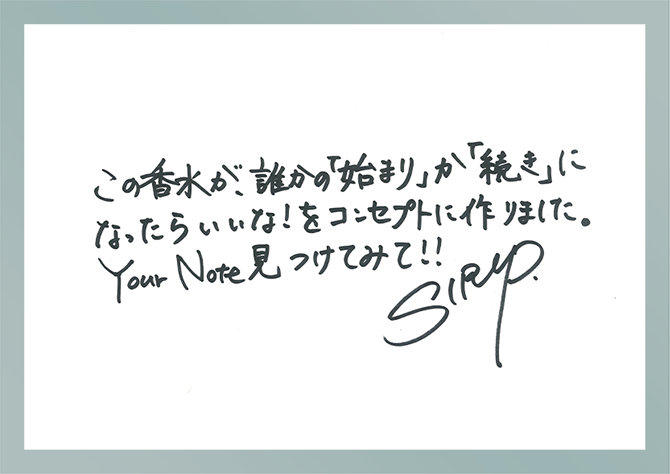 この香水が、誰かの「始まり」か「続き」に
なったらいいな!をコンセプトに作りました。
Your Note 見つけてみて!!
SIRUP.